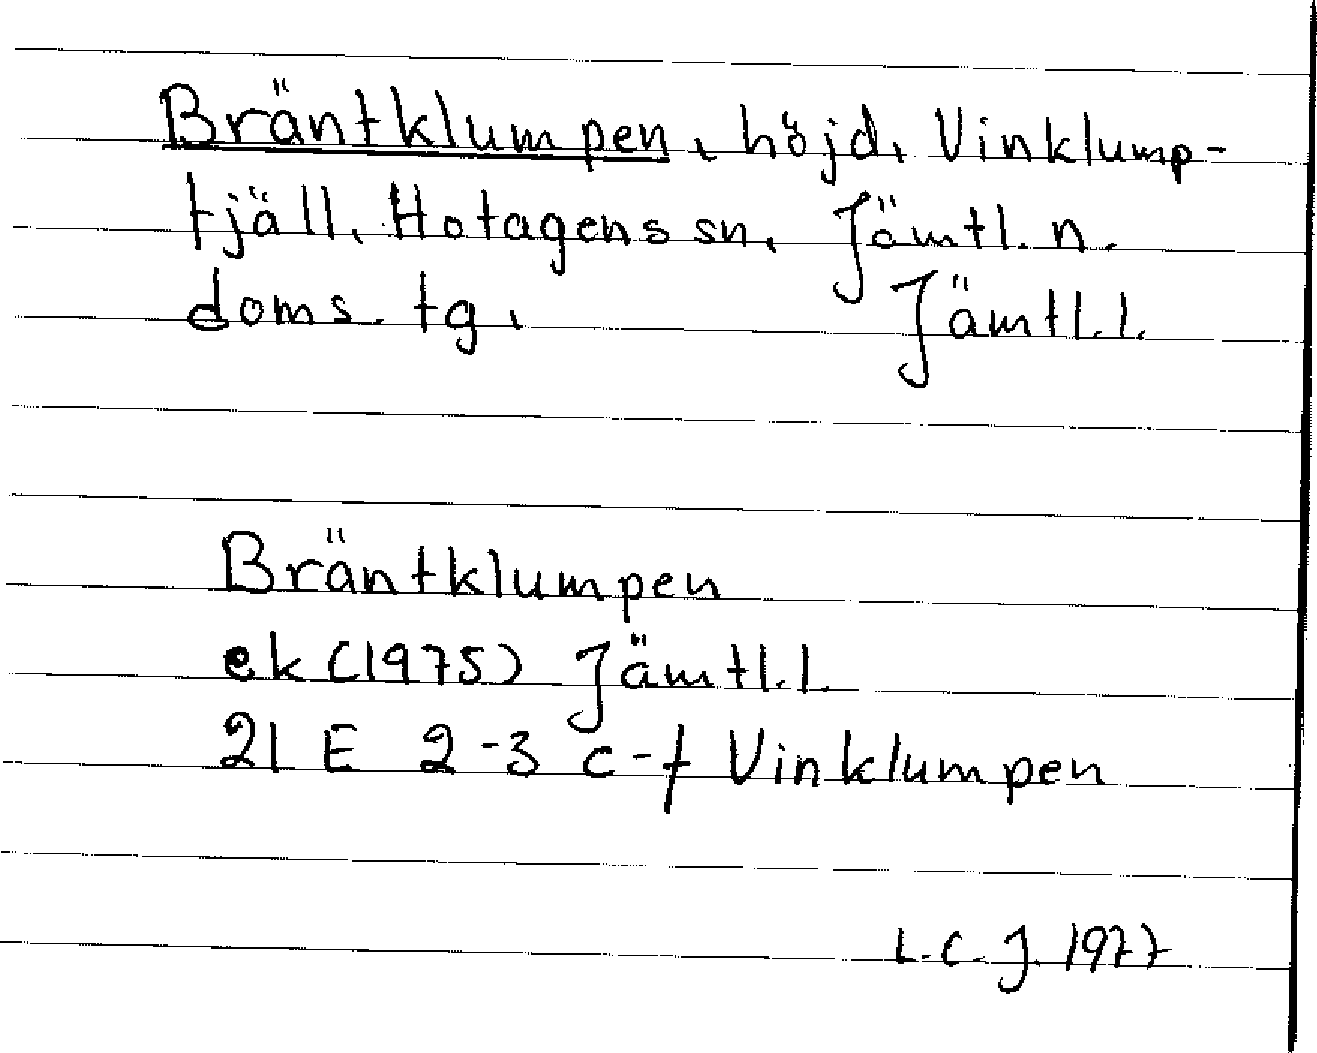 Bräntklumpen, höjd, Vinklump-
fjäll, Hotagens sn, Jämtl. n.
doms. tg, Jämtl. l.
Bräntklumpen
ek (1975) Jämtl. l.
21 E 2-3 c-f Vinklumpen
L. C. J. 1977